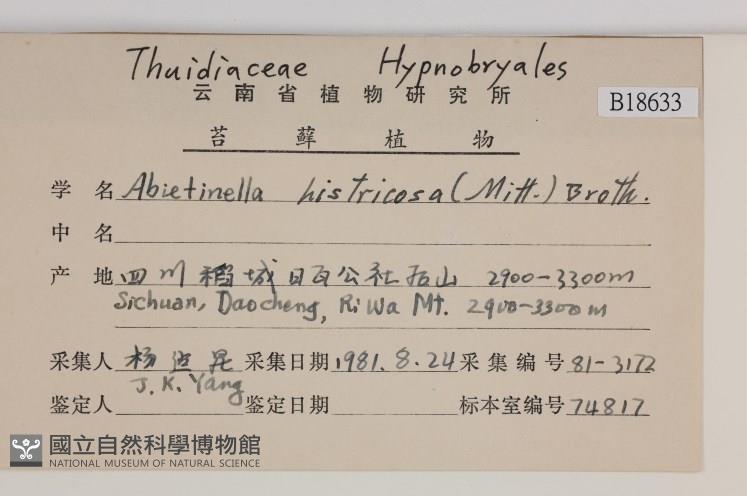 Thuidiaceae Hypnobryales
云南省植物研究所
B18633
苔藓植物
学名 Abietinella histricosa (Mitt.) Broth.
中名
产地 四川稻城日瓦公社后山 2900-3300m
Sichuan, Daocheng, Ri Wa Mt. 2900-3300m
采集人 杨 昆 采集日期 1981.8.24 采集编号 81-3172
J.K. Yang
鉴定人 鉴定日期 标本室编号 74817
國立自然科學博物館
NATIONAL MUSEUM OF NATURAL SCIENCE